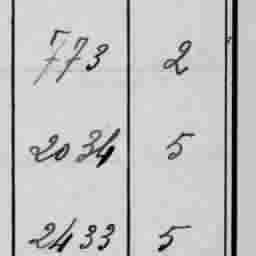 773 2
2034 5
2433 5